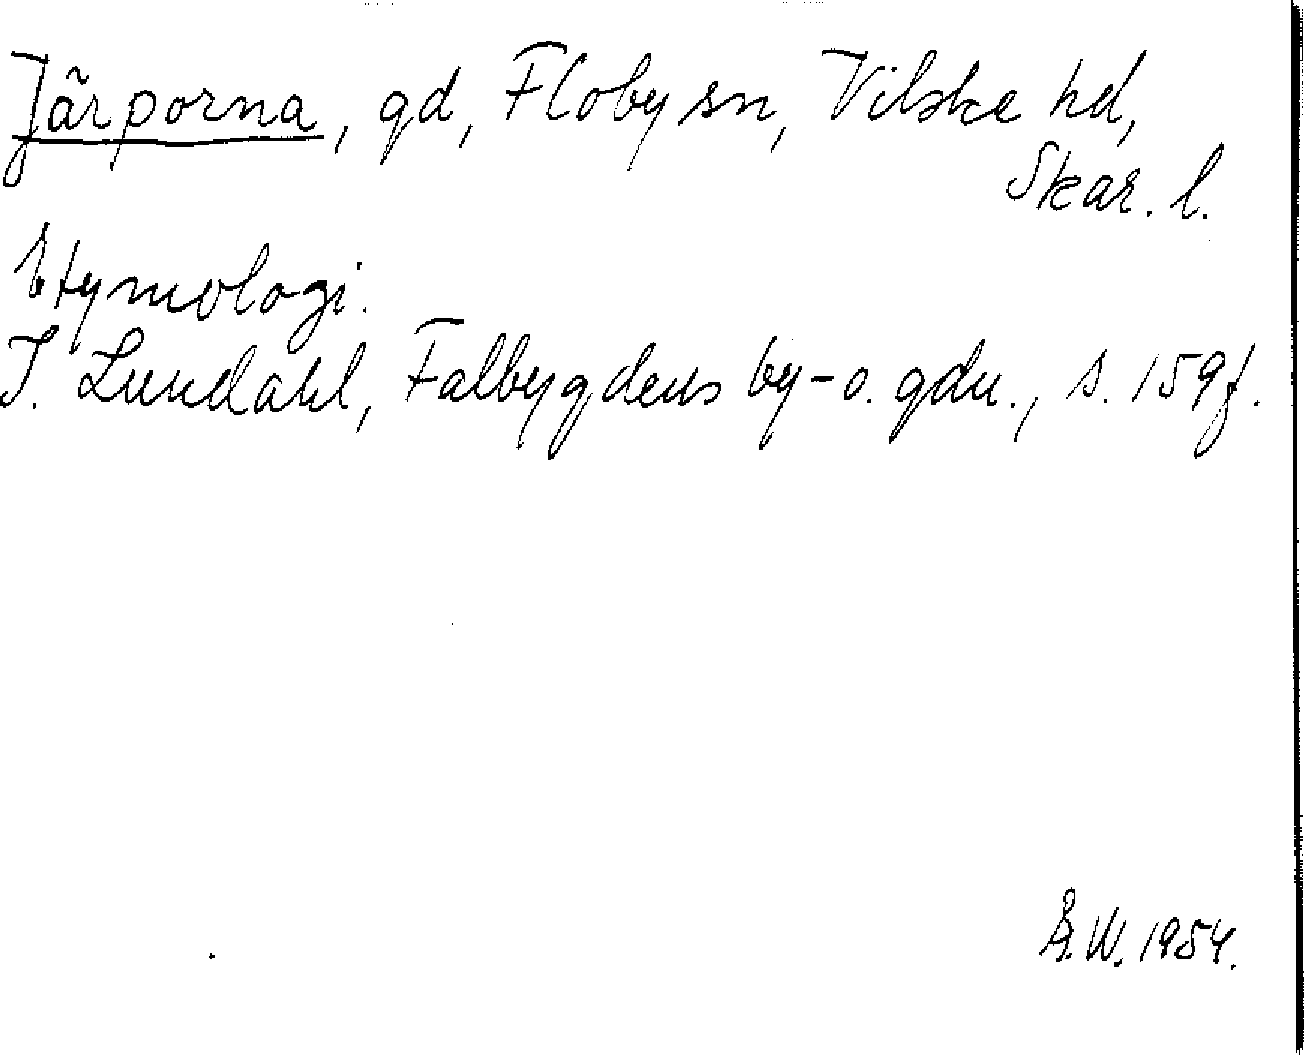 Järporna, gd, Floby sn, Vilske hd,
Skar. l.
Etymologi.
I. Lundahl, Falbygdens by- o. gdn., s. 159 f.
Å.W. 1954.